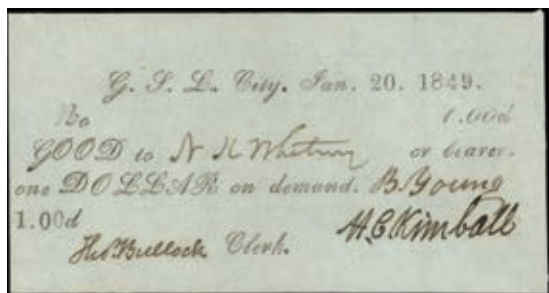 G. S. L. City. Jan. 20. 1849.
No 1.00d
GOOD to N K Whitney or bearer.
one DOLLAR on demand. B. Young
1.00d H. C. Kimball
Thos. Bullock Clerk.